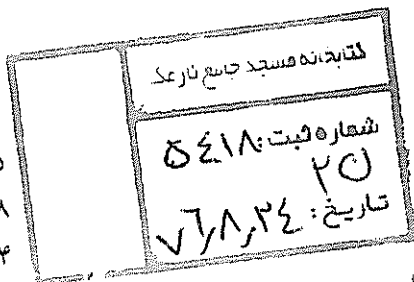 کتابخانه مسجد جامع نارمک
شماره ثبت: ۵٤۱۸
ن۲
تاریخ: ۷٦,۸,۲٤
۵
۸
۴